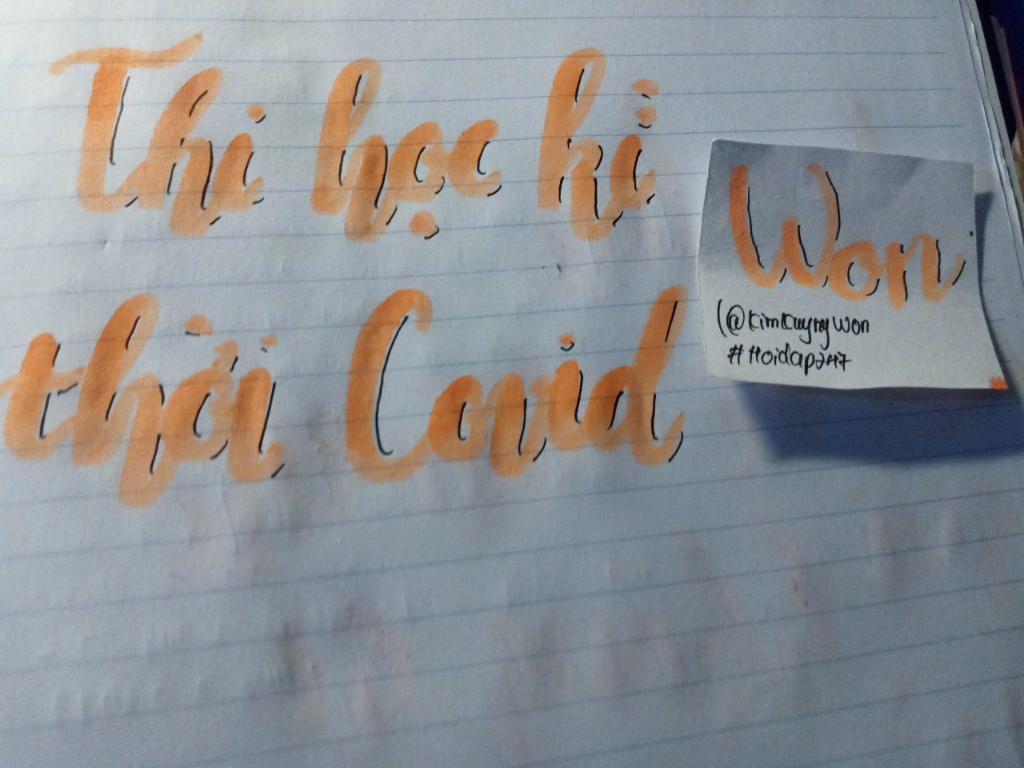 Thi học kì
thời Covid
Won
(@KimKuyngWon
#Hoidap247